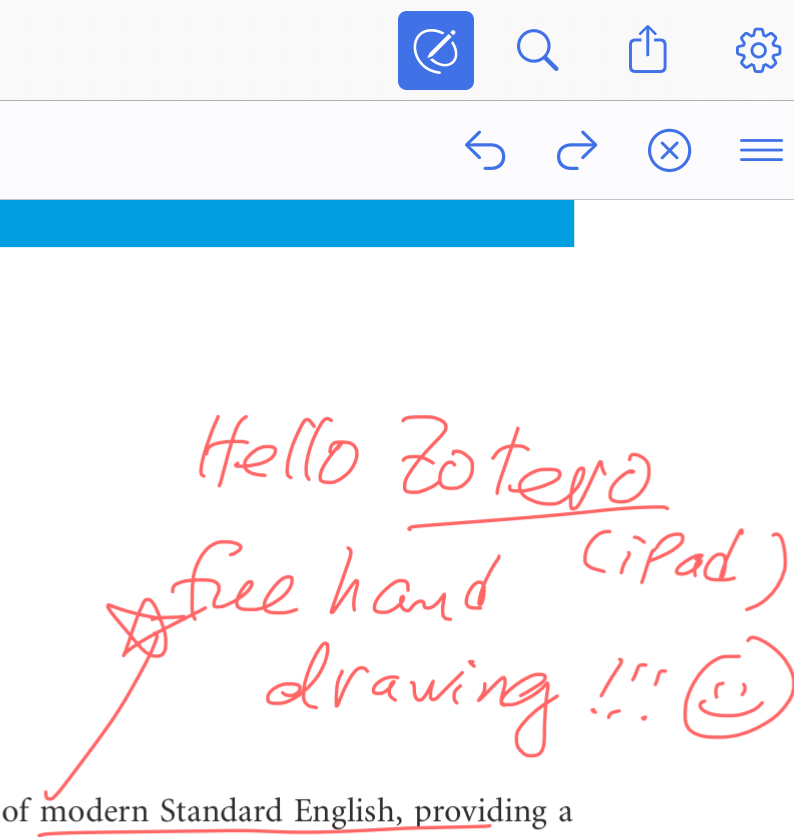 Hello Zotero
(iPad)
free hand
drawing !!!
of modern Standard English, providing a